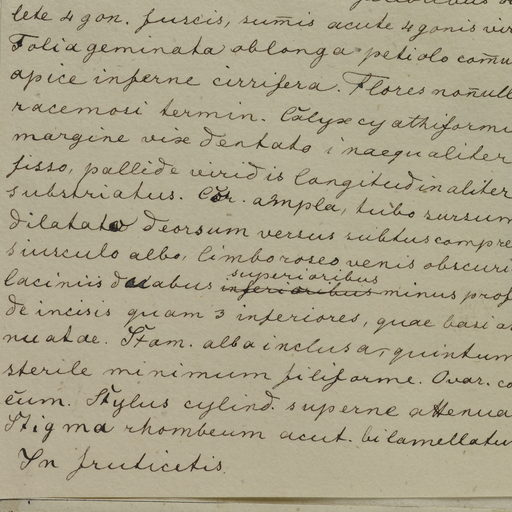 lete 4gon. fuscis, sum̄is acute 4gonis vir
Folia geminata oblonga petiolo com̄u
apice inferne cirrifera. Flores non̄ull
racemosi termin. Calyx cyathiformi
margine vix dentato inaequaliter
fisso, pallide viridis longitudinaliter
substriatus. Cor. ampla, tubo sursum
dilatato deorsum versus subtus compre
siusculo albo, limbo roseo venis obscuri
laciniis duabus superioribus minus prof
de incisis quam 3 inferiores, quae basi a
nuatae. Stam. alba inclusa, quintum
sterile minimum filiforme. Ovar. co
eum. Stylus cylind. superne attenua
Stigma rhombeum acut. bilamellatu
In fruticetis